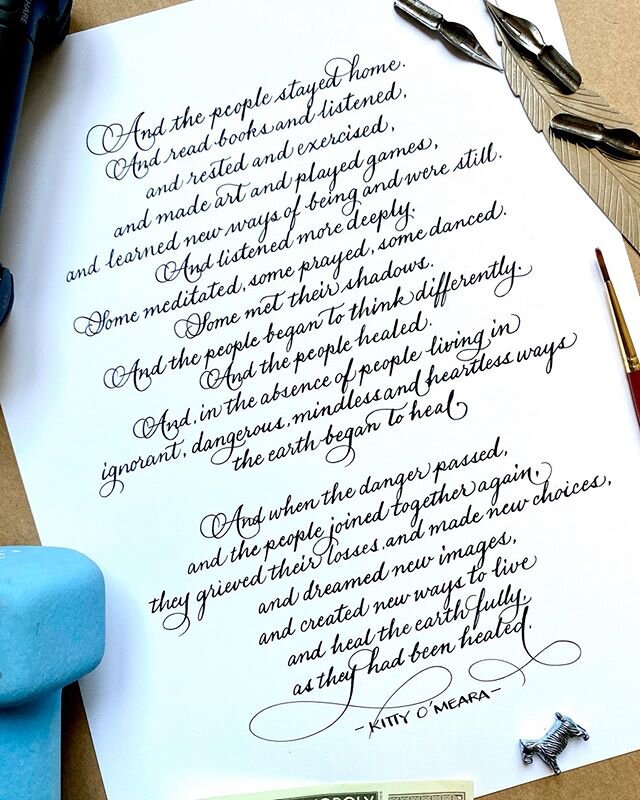 And the people stayed home.
And read books and listened,
and rested and exercised,
and made art and played games,
and learned new ways of being and were still.
And listened more deeply.
Some meditated, some prayed, some danced.
Some met their shadows.
And the people began to think differently.
And the people healed.
And, in the absence of people living in
ignorant, dangerous, mindless and heartless ways
the earth began to heal
And when the danger passed,
and the people joined together again,
they grieved their losses, and made new choices,
and dreamed new images,
and created new ways to live
and heal the earth fully,
as they had been healed.
-KITTY O'MEARA-